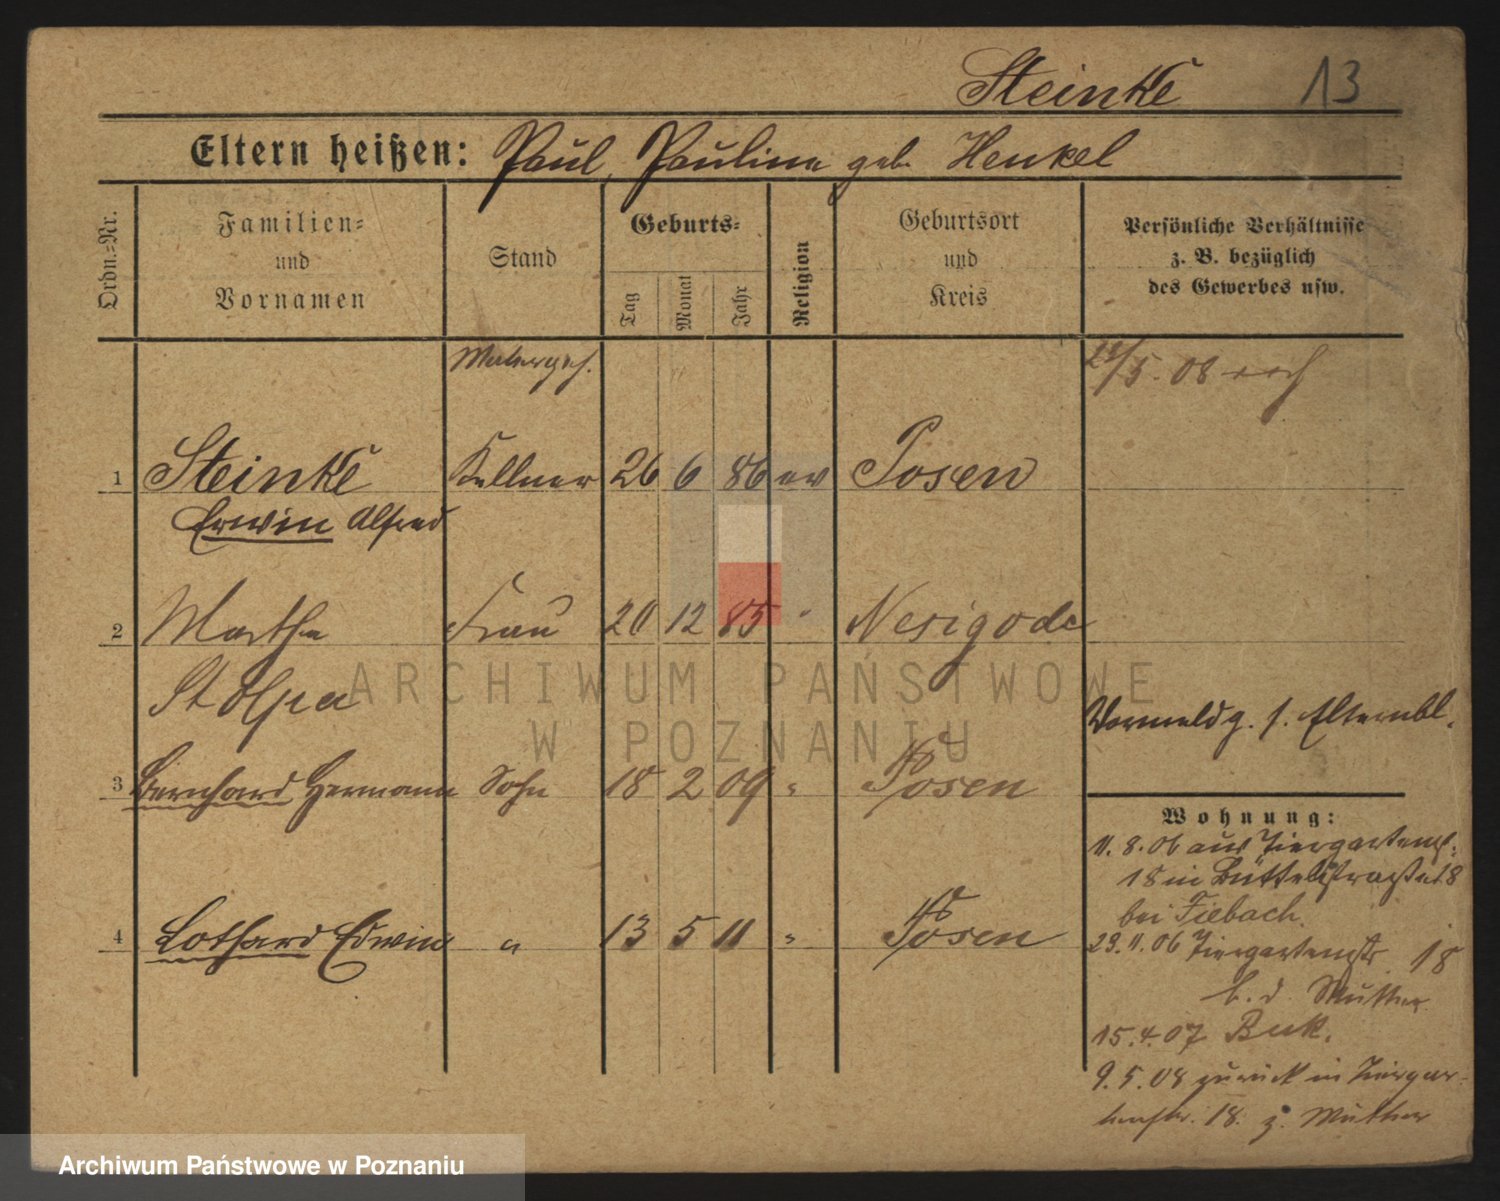 Steinke 13
Eltern heißen: Paul, Pauline geb. Henkel
Ordn.=Nr.
Familien= und Vornamen
Stand
Geburts=
Tag
Monat
Jahr
Religion
Geburtsort und Kreis
Persönliche Verhältnisse
z. B. bezüglich
des Gewerbes usw.
/5. 08
1 Steinke Kellner 26 6 86 ev Posen
Erwin Alfred
2 Martha Frau 20 12 85 " Nesigode
Stolpa
Vormeldg. s. Elternbl.
3 Bernhard Hermann Sohn 18 2 09 " Posen
4 Lothard Edwin " 13 5 11 " Posen
Wohnung:
11. 8. 06 aus Tiergartenstr.
18 in Büttelstraße 18
bei Fiebach
29. 11. 06 Tiergartenstr. 18
b. d. Mutter
15. 4. 07 Buk.
9. 5. 08 zurück in Tiergar-
tenstr. 18. z. Mutter
ARCHIWUM PAŃSTWOWE
W POZNANIU
Archiwum Państwowe w Poznaniu